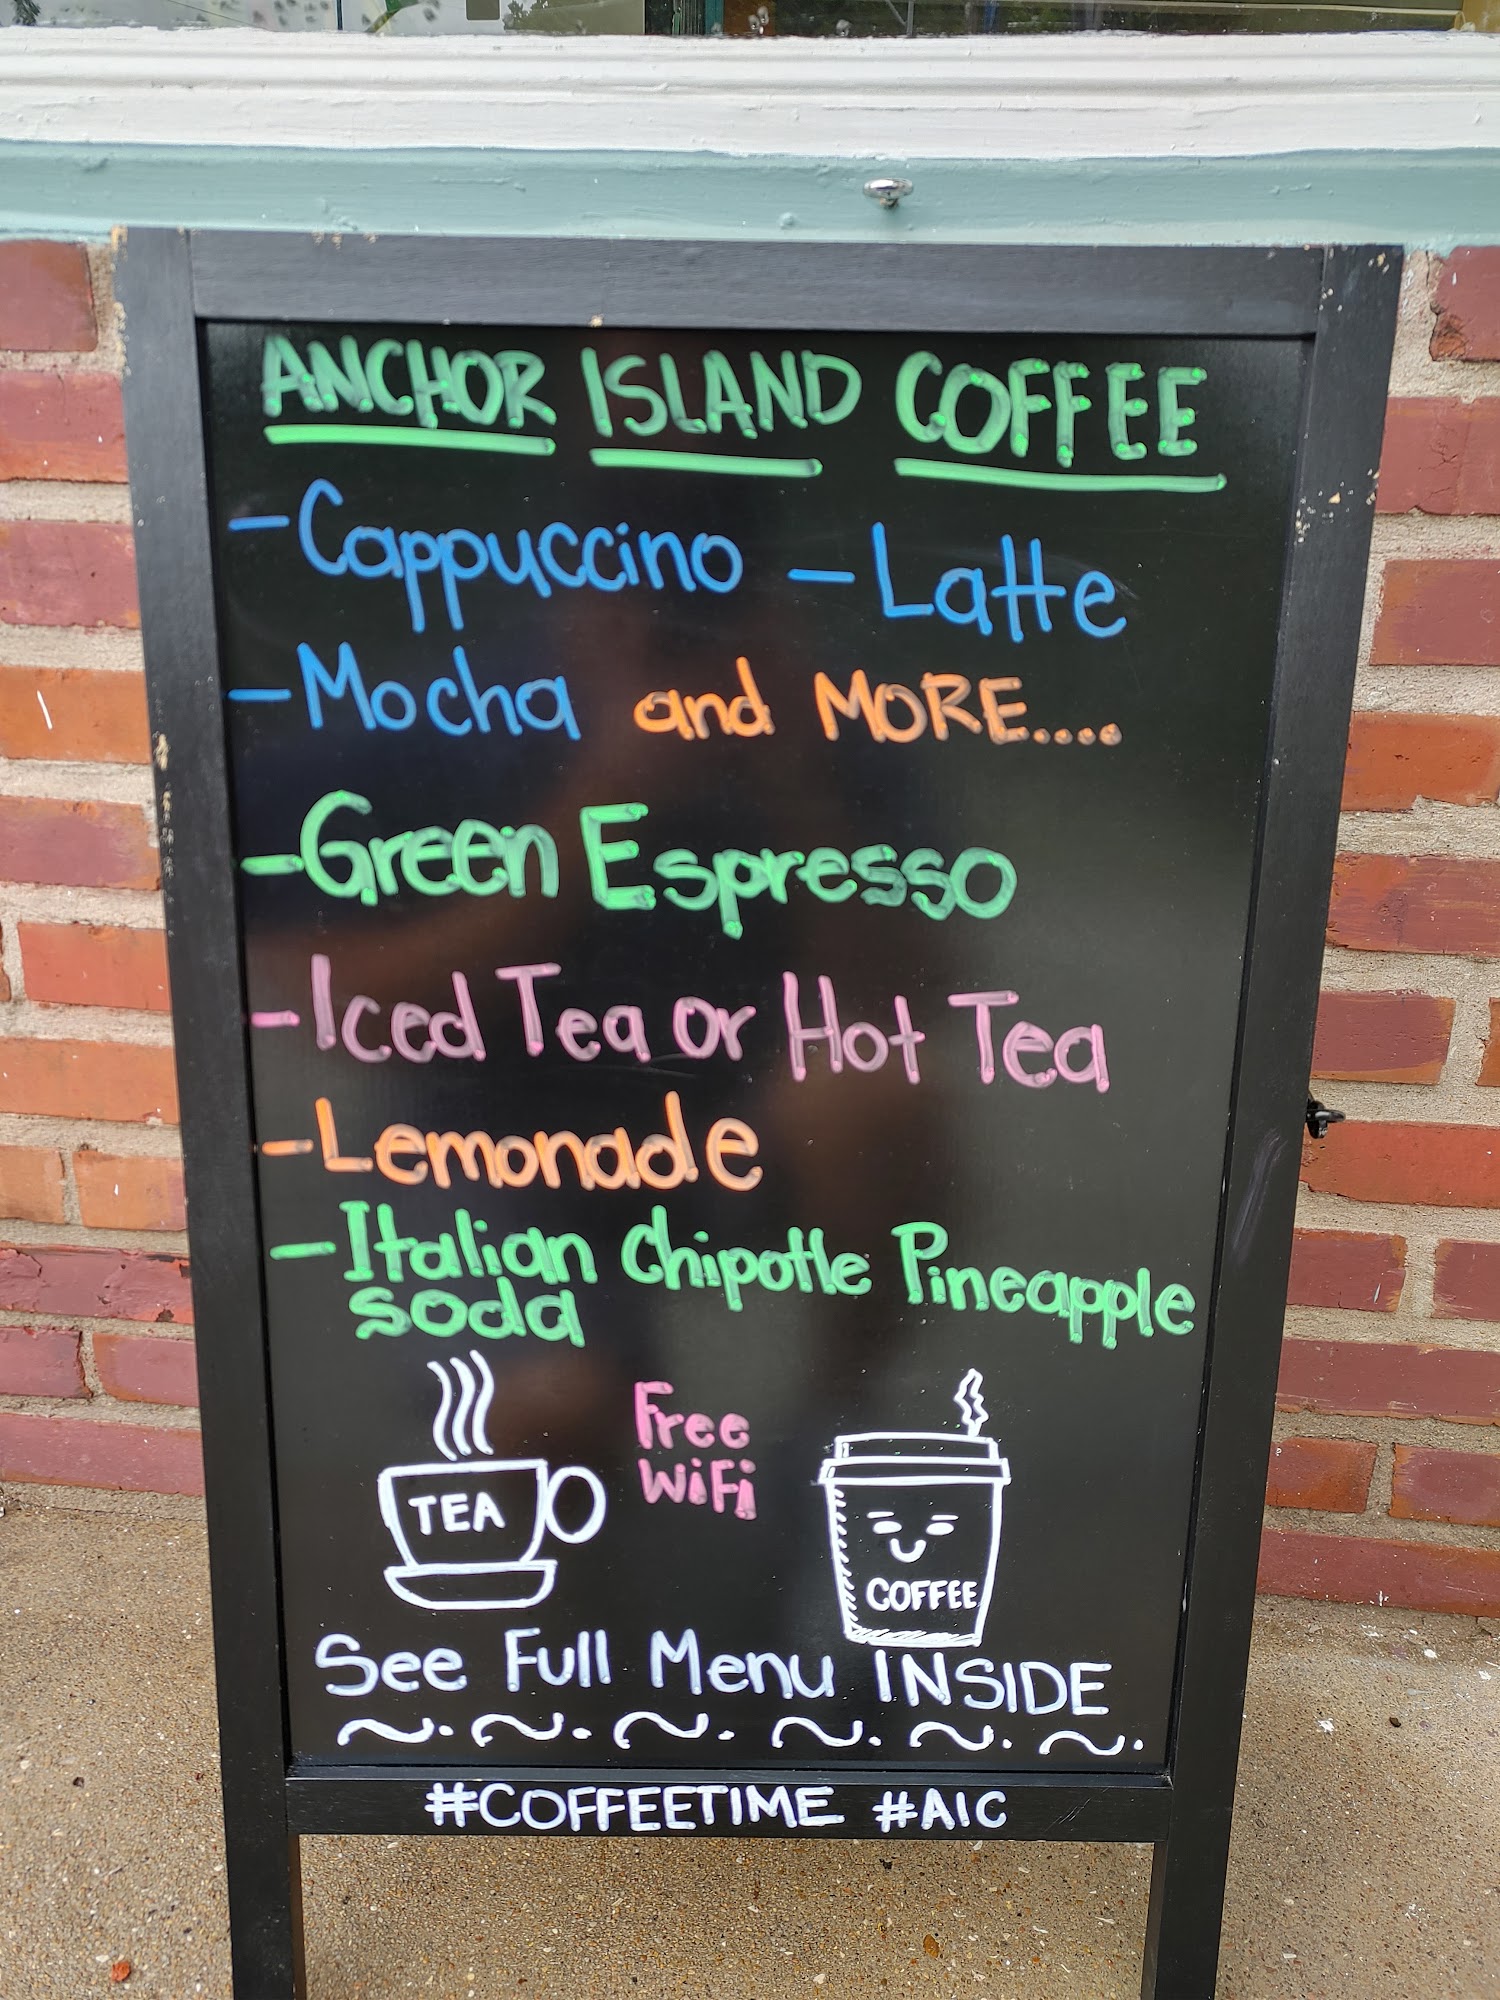 ANCHOR ISLAND COFFEE
- Cappuccino - Latte
- Mocha and MORE....
- Green Espresso
- Iced Tea or Hot Tea
- Lemonade
- Italian Chipotle Pineapple
soda
Free
WiFi
TEA
COFFEE
See Full Menu INSIDE
#COFFEETIME #AIC